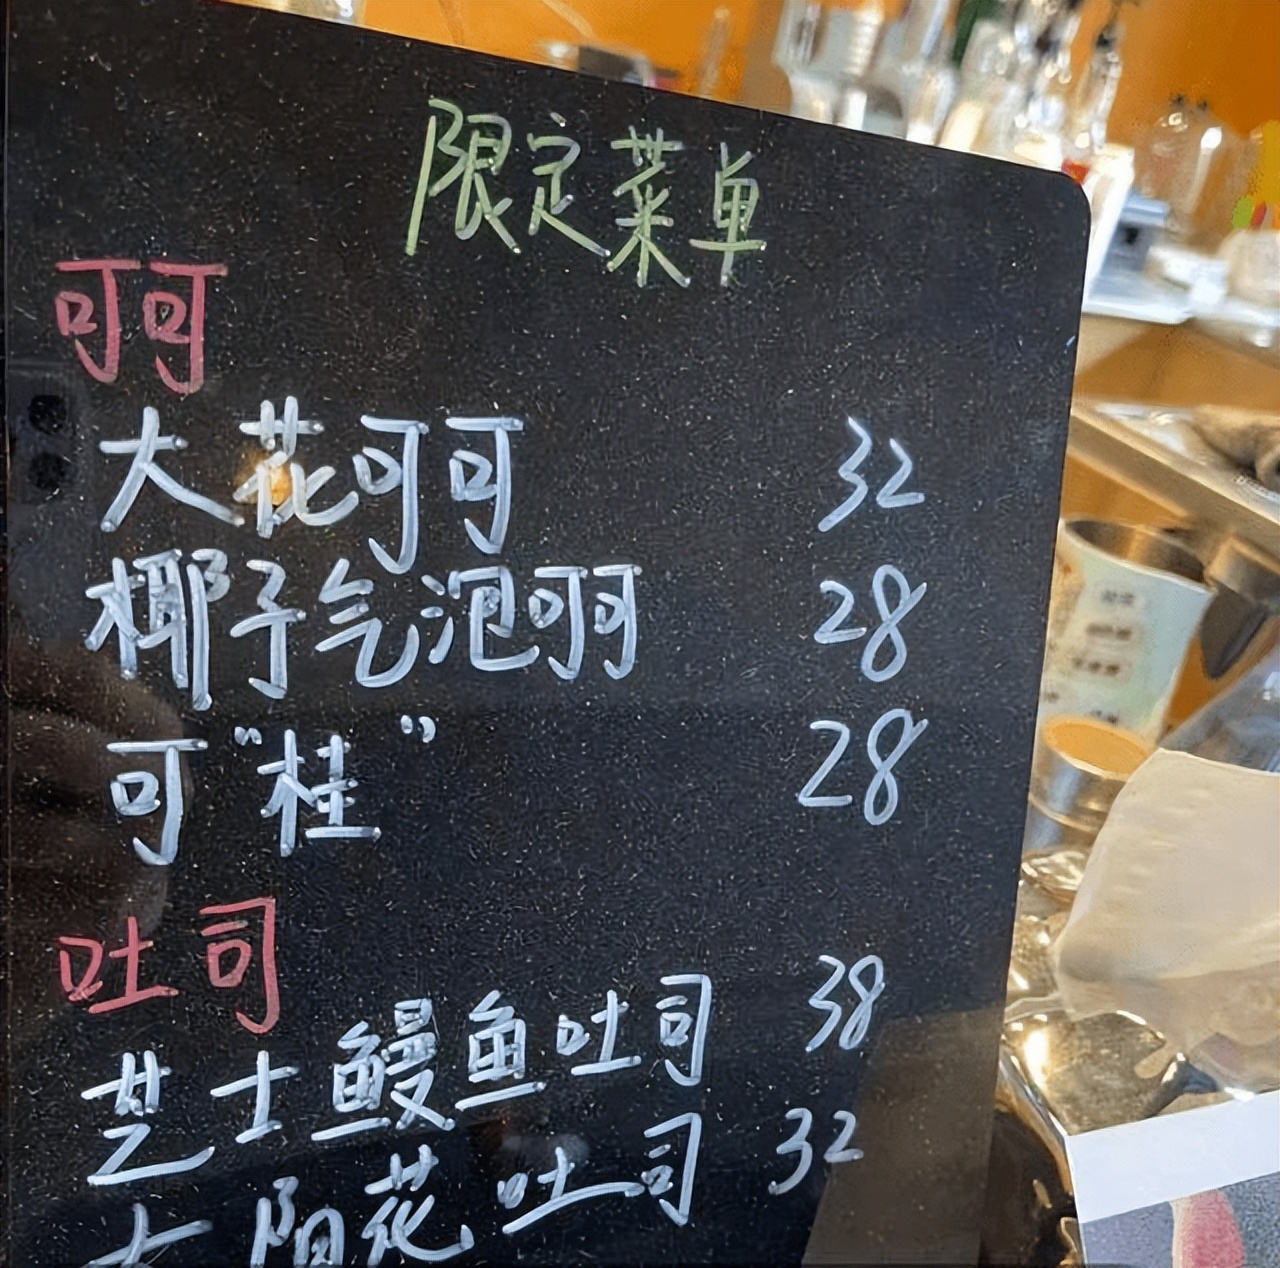 限定菜单
可可
大花可可 32
椰子气泡可可 28
可“桂” 28
吐司
芝士鳗鱼吐司 38
阳花吐司 32